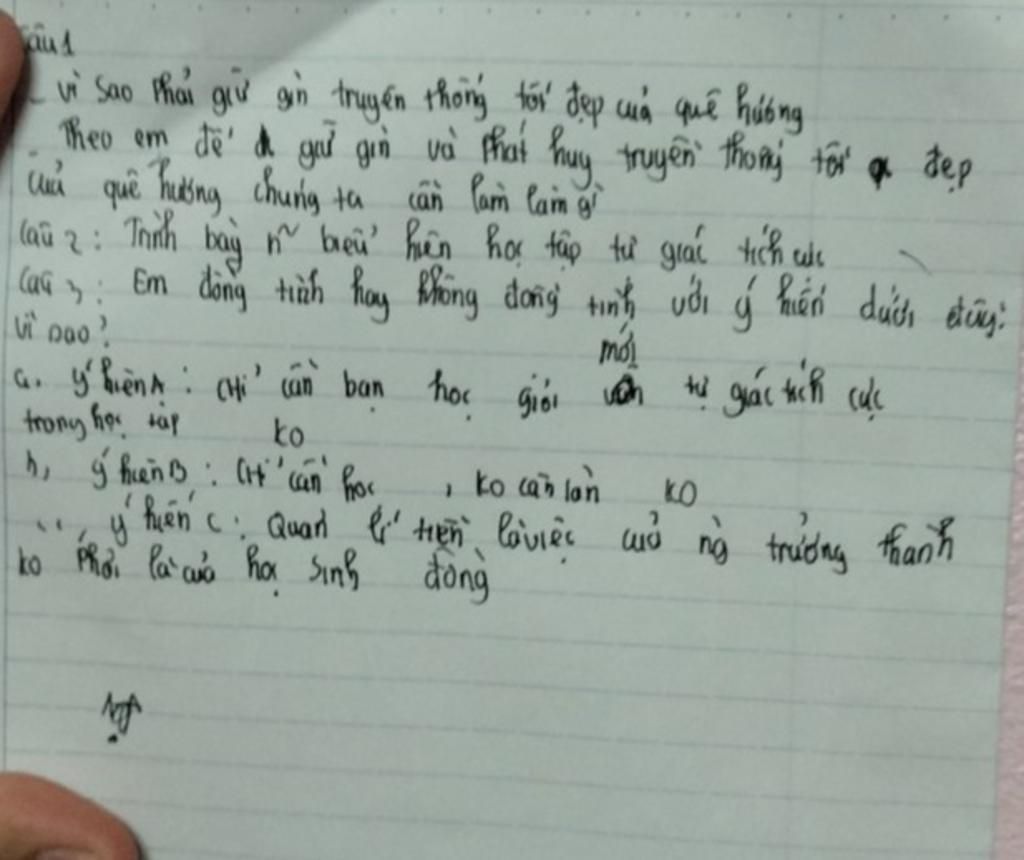 Câu 1
- Vì sao phải giữ gìn truyền thống tốt đẹp của quê hương
- Theo em để giữ gìn và phát huy truyền thống tốt đẹp
của quê hương chúng ta cần làm làm gì
Câu 2: Trình bày n~ biểu hiện học tập tự giác tích cực
Câu 3: Em đồng tình hay không đồng tình với ý kiến dưới đây?
Vì sao?
mới
a. Ý kiến A: Chỉ cần bạn học giỏi tự giác tích cực
trong học tập
ko
b, ý kiến B: Chỉ cần học , ko cần làm ko
ý kiến C: Quản lí tiền là việc của ng trưởng thành
ko phải là của học sinh đồng